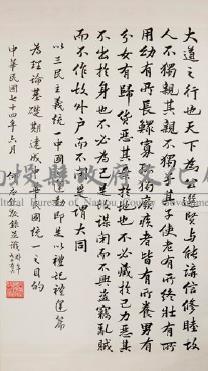 大道之行也天下為公選賢與能講信修睦故
人不獨親其親不獨子其子使老有所終壯有所
用幼有所長鰥寡孤獨廢疾者皆有所養男有
分女有歸貨惡其棄於地也不必藏於己力惡其
不出於身也不必為己是故謀閉而不興盜竊亂賊
而不作故外戶而不閉是謂大同
以三民主義統一中國之行動即是以禮記禮運篇
為理論基礎期達成中華民國統一之目的
中華民國七十四年六月 敬錄並識
南投縣政府文化局